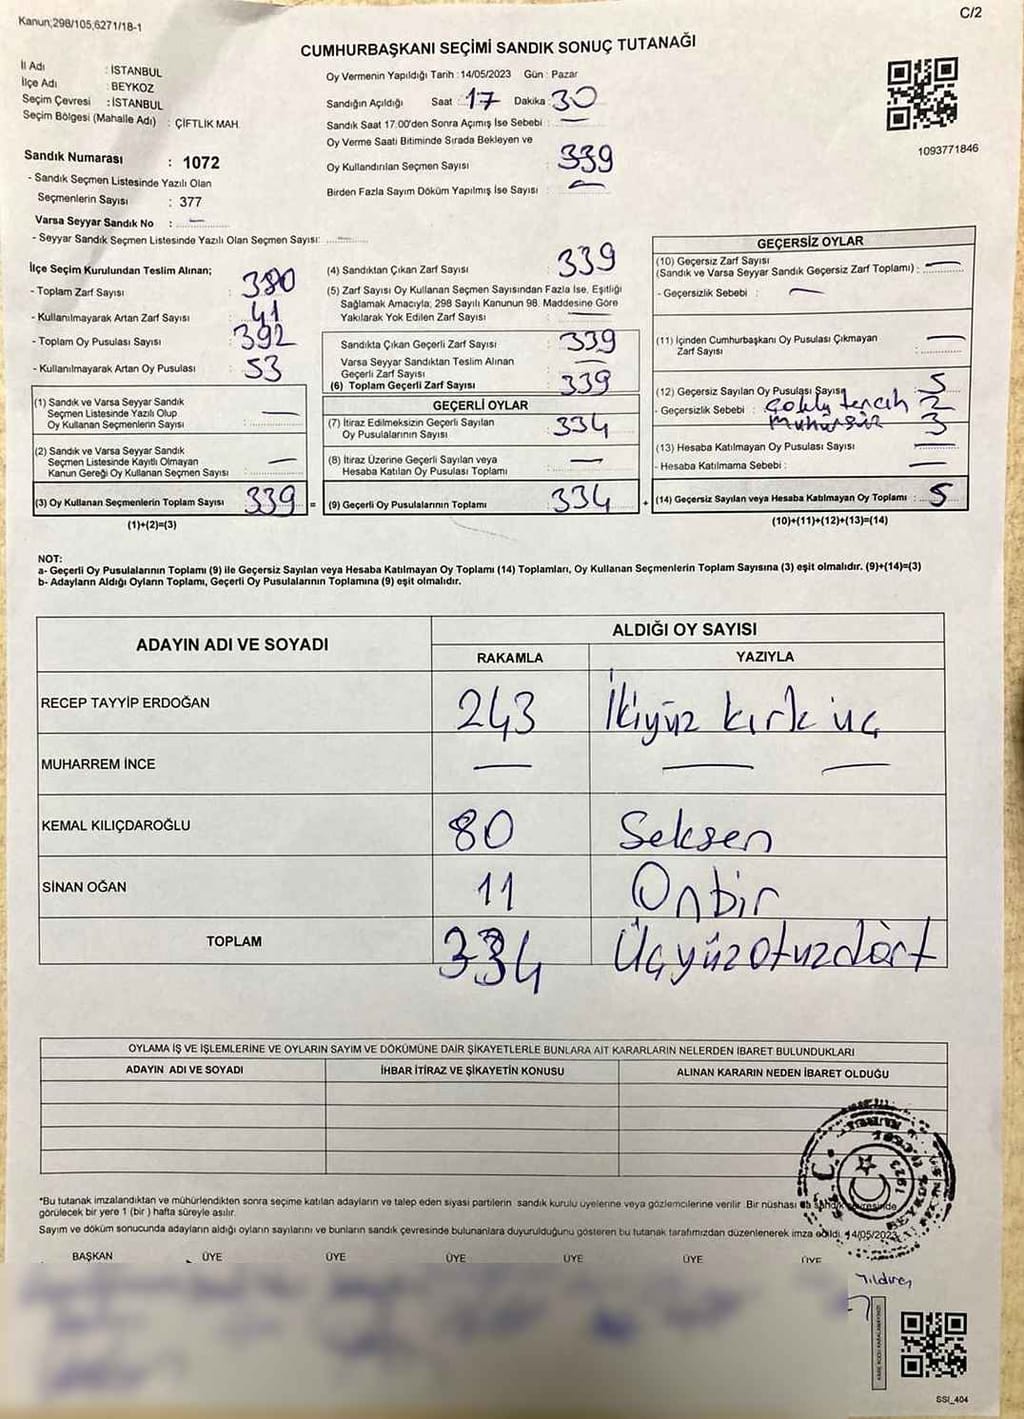 Kanun;298/105,6271/18-1
C/2
CUMHURBAŞKANI SEÇİMİ SANDIK SONUÇ TUTANAĞI
İl Adı : İSTANBUL
İlçe Adı : BEYKOZ
Seçim Çevresi : İSTANBUL
Seçim Bölgesi (Mahalle Adı) : ÇİFTLİK MAH.
Sandık Numarası : 1072
- Sandık Seçmen Listesinde Yazılı Olan
Seçmenlerin Sayısı : 377
Varsa Seyyar Sandık No : —
- Seyyar Sandık Seçmen Listesinde Yazılı Olan Seçmen Sayısı: —
Oy Vermenin Yapıldığı Tarih : 14/05/2023 Gün : Pazar
Sandığın Açıldığı Saat : 17 Dakika : 30
Sandık Saat 17.00'den Sonra Açımış İse Sebebi : —
Oy Verme Saati Bitiminde Sırada Bekleyen ve
Oy Kullandırılan Seçmen Sayısı : 339
Birden Fazla Sayım Döküm Yapılmış İse Sayısı : —
1093771846
İlçe Seçim Kurulundan Teslim Alınan;
- Toplam Zarf Sayısı : 380
- Kullanılmayarak Artan Zarf Sayısı : 41
- Toplam Oy Pusulası Sayısı : 392
- Kullanılmayarak Artan Oy Pusulası : 53
(1) Sandık ve Varsa Seyyar Sandık
Seçmen Listesinde Yazılı Olup
Oy Kullanan Seçmenlerin Sayısı : —
(2) Sandık ve Varsa Seyyar Sandık
Seçmen Listesinde Kayıtlı Olmayan
Kanun Gereği Oy Kullanan Seçmen Sayısı : —
(3) Oy Kullanan Seçmenlerin Toplam Sayısı : 339 =
(1)+(2)=(3)
(4) Sandıktan Çıkan Zarf Sayısı : 339
(5) Zarf Sayısı Oy Kullanan Seçmen Sayısından Fazla İse, Eşitliği
Sağlamak Amacıyla; 298 Sayılı Kanunun 98. Maddesine Göre
Yakılarak Yok Edilen Zarf Sayısı : —
Sandıkta Çıkan Geçerli Zarf Sayısı : 339
Varsa Seyyar Sandıktan Teslim Alınan
Geçerli Zarf Sayısı : —
(6) Toplam Geçerli Zarf Sayısı : 339
GEÇERLİ OYLAR
(7) İtiraz Edilmeksizin Geçerli Sayılan
Oy Pusulalarının Sayısı : 334
(8) İtiraz Üzerine Geçerli Sayılan veya
Hesaba Katılan Oy Pusulası Toplamı : —
(9) Geçerli Oy Pusulalarının Toplamı : 334 +
GEÇERSİZ OYLAR
(10) Geçersiz Zarf Sayısı
(Sandık ve Varsa Seyyar Sandık Geçersiz Zarf Toplamı) : —
- Geçersizlik Sebebi : —
(11) İçinden Cumhurbaşkanı Oy Pusulası Çıkmayan
Zarf Sayısı : —
(12) Geçersiz Sayılan Oy Pusulası Sayısı : 5
- Geçersizlik Sebebi : Çoklu tercih 2
Mühürsüz 3
(13) Hesaba Katılmayan Oy Pusulası Sayısı : —
- Hesaba Katılmama Sebebi : —
(14) Geçersiz Sayılan veya Hesaba Katılmayan Oy Toplamı : 5
(10)+(11)+(12)+(13)=(14)
NOT:
a- Geçerli Oy Pusulalarının Toplamı (9) ile Geçersiz Sayılan veya Hesaba Katılmayan Oy Toplamı (14) Toplamları, Oy Kullanan Seçmenlerin Toplam Sayısına (3) eşit olmalıdır. (9)+(14)=(3)
b- Adayların Aldığı Oyların Toplamı, Geçerli Oy Pusulalarının Toplamına (9) eşit olmalıdır.
ADAYIN ADI VE SOYADI
ALDIĞI OY SAYISI
RAKAMLA YAZIYLA
RECEP TAYYİP ERDOĞAN 243 İkiyüz kırk üç
MUHARREM İNCE — — —
KEMAL KILIÇDAROĞLU 80 Seksen
SİNAN OĞAN 11 Onbir
TOPLAM 334 Üçyüzotuzdört
OYLAMA İŞ VE İŞLEMLERİNE VE OYLARIN SAYIM VE DÖKÜMÜNE DAİR ŞİKAYETLERLE BUNLARA AİT KARARLARIN NELERDEN İBARET BULUNDUKLARI
ADAYIN ADI VE SOYADI İHBAR İTİRAZ VE ŞİKAYETİN KONUSU ALINAN KARARIN NEDEN İBARET OLDUĞU
*Bu tutanak imzalandıktan ve mühürlendikten sonra seçime katılan adayların ve talep eden siyasi partilerin sandık kurulu üyelerine veya gözlemcilerine verilir .Bir nüshası da sandık çevresinde
görülecek bir yere 1 (bir ) hafta süreyle asılır.
Sayım ve döküm sonucunda adayların aldığı oyların sayılarını ve bunların sandık çevresinde bulunanlara duyurulduğunu gösteren bu tutanak tarafımızdan düzenlenerek imza edildi. 14/05/2023
BAŞKAN ÜYE ÜYE ÜYE ÜYE ÜYE ÜYE
SSI_404